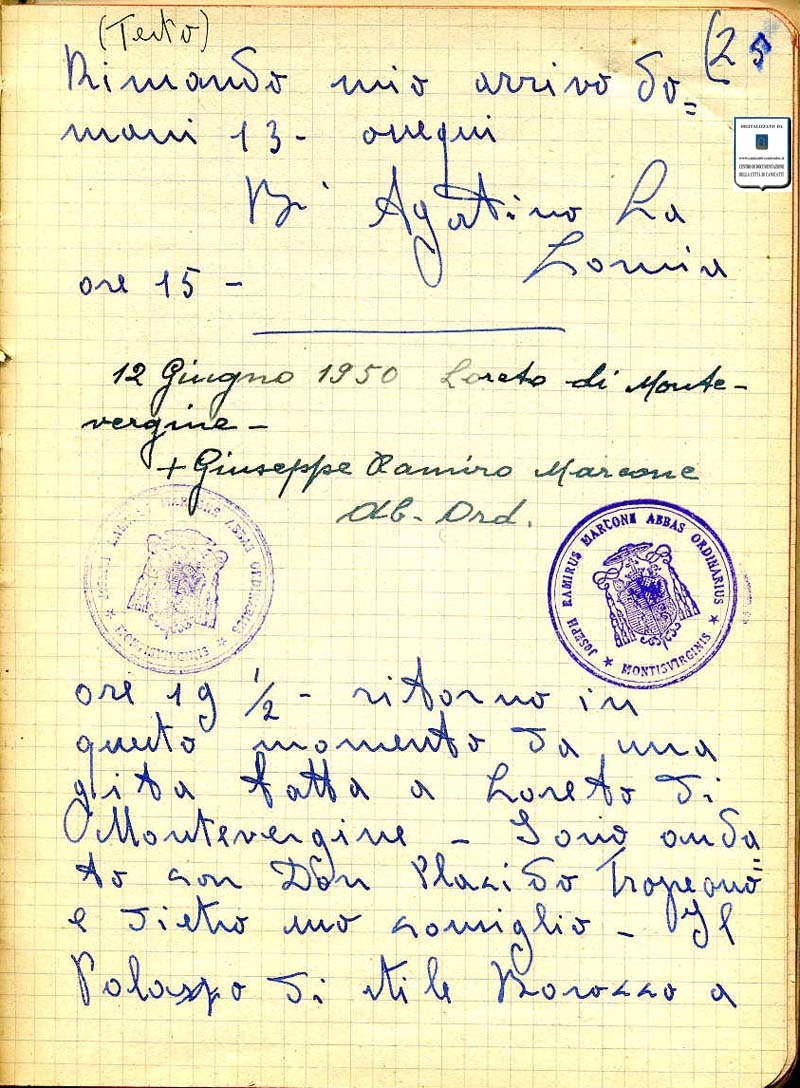 (Testo)
(25
Rimando mio arrivo do=
mani 13 - ossequi
Bne Agatino La
Lomia
ore 15 -
DIGITALIZZATO DA
www.canicatti-centrodoc.it
CENTRO DI DOCUMENTAZIONE
DELLA CITTÀ DI CANICATTÌ
12 Giugno 1950 Loreto di Monte-
vergine -
+ Giuseppe Ramiro Marcone
Ab. Ord.
JOSEPH RAMIRUS MARCONE ABBAS ORDINARIUS
★ MONTISVIRGINIS ★
JOSEPH RAMIRUS MARCONE ABBAS ORDINARIUS
★ MONTISVIRGINIS ★
ore 19 1/2 - ritorno in
questo momento da una
gita fatta a Loreto di
Montevergine - Sono anda=
to con Don Placido Tropeano
e dietro suo consiglio - Il
Palazzo di stile Barocco a